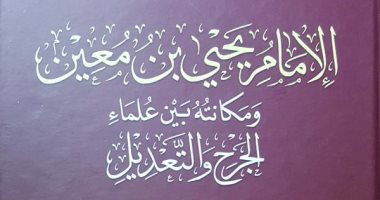 الإِمَامُ يَحْيَى بْنُ مُعِين
وَمَكَانَتُهُ بَيْنَ عُلَمَاءِ
الجَرْحِ وَالتَّعْدِيلِ